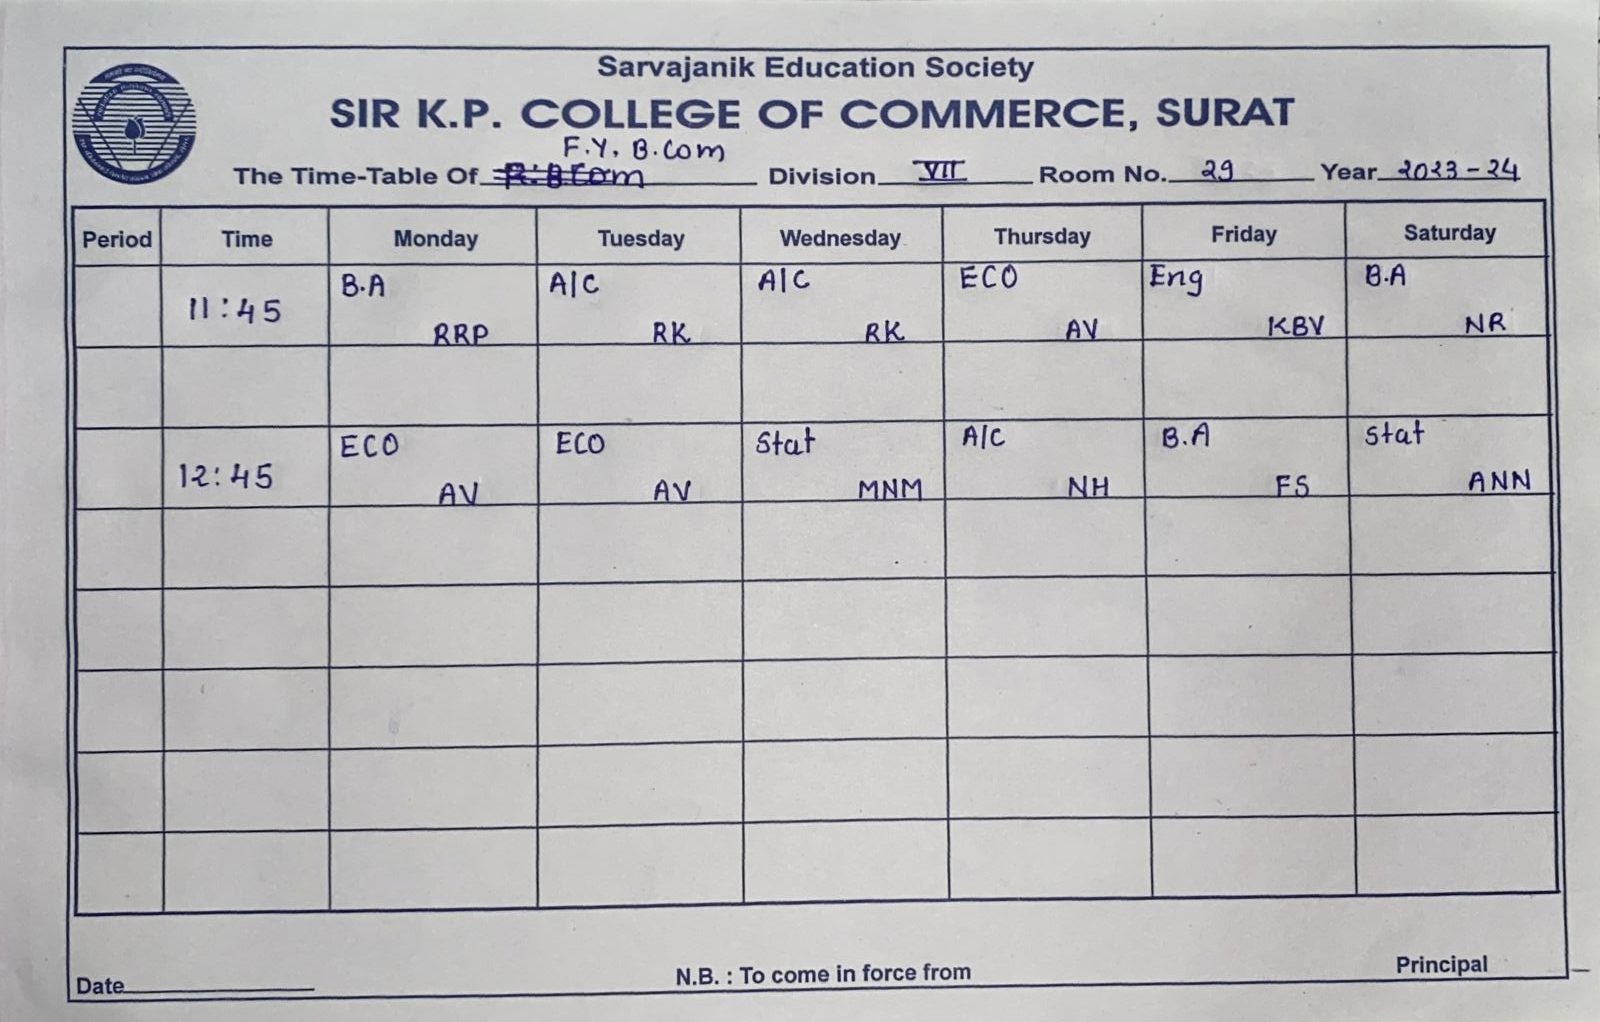 Sarvajanik Education Society
SIR K.P. COLLEGE OF COMMERCE, SURAT
F.Y. B.Com
The Time-Table Of Division VII Room No. 29 Year 2023-24
Period Time Monday Tuesday Wednesday Thursday Friday Saturday
11:45 B.A RRP A/C RK A/C RK ECO AV Eng KBV B.A NR
12:45 ECO AV ECO AV Stat MNM A/C NH B.A FS Stat ANN
Date N.B. : To come in force from Principal